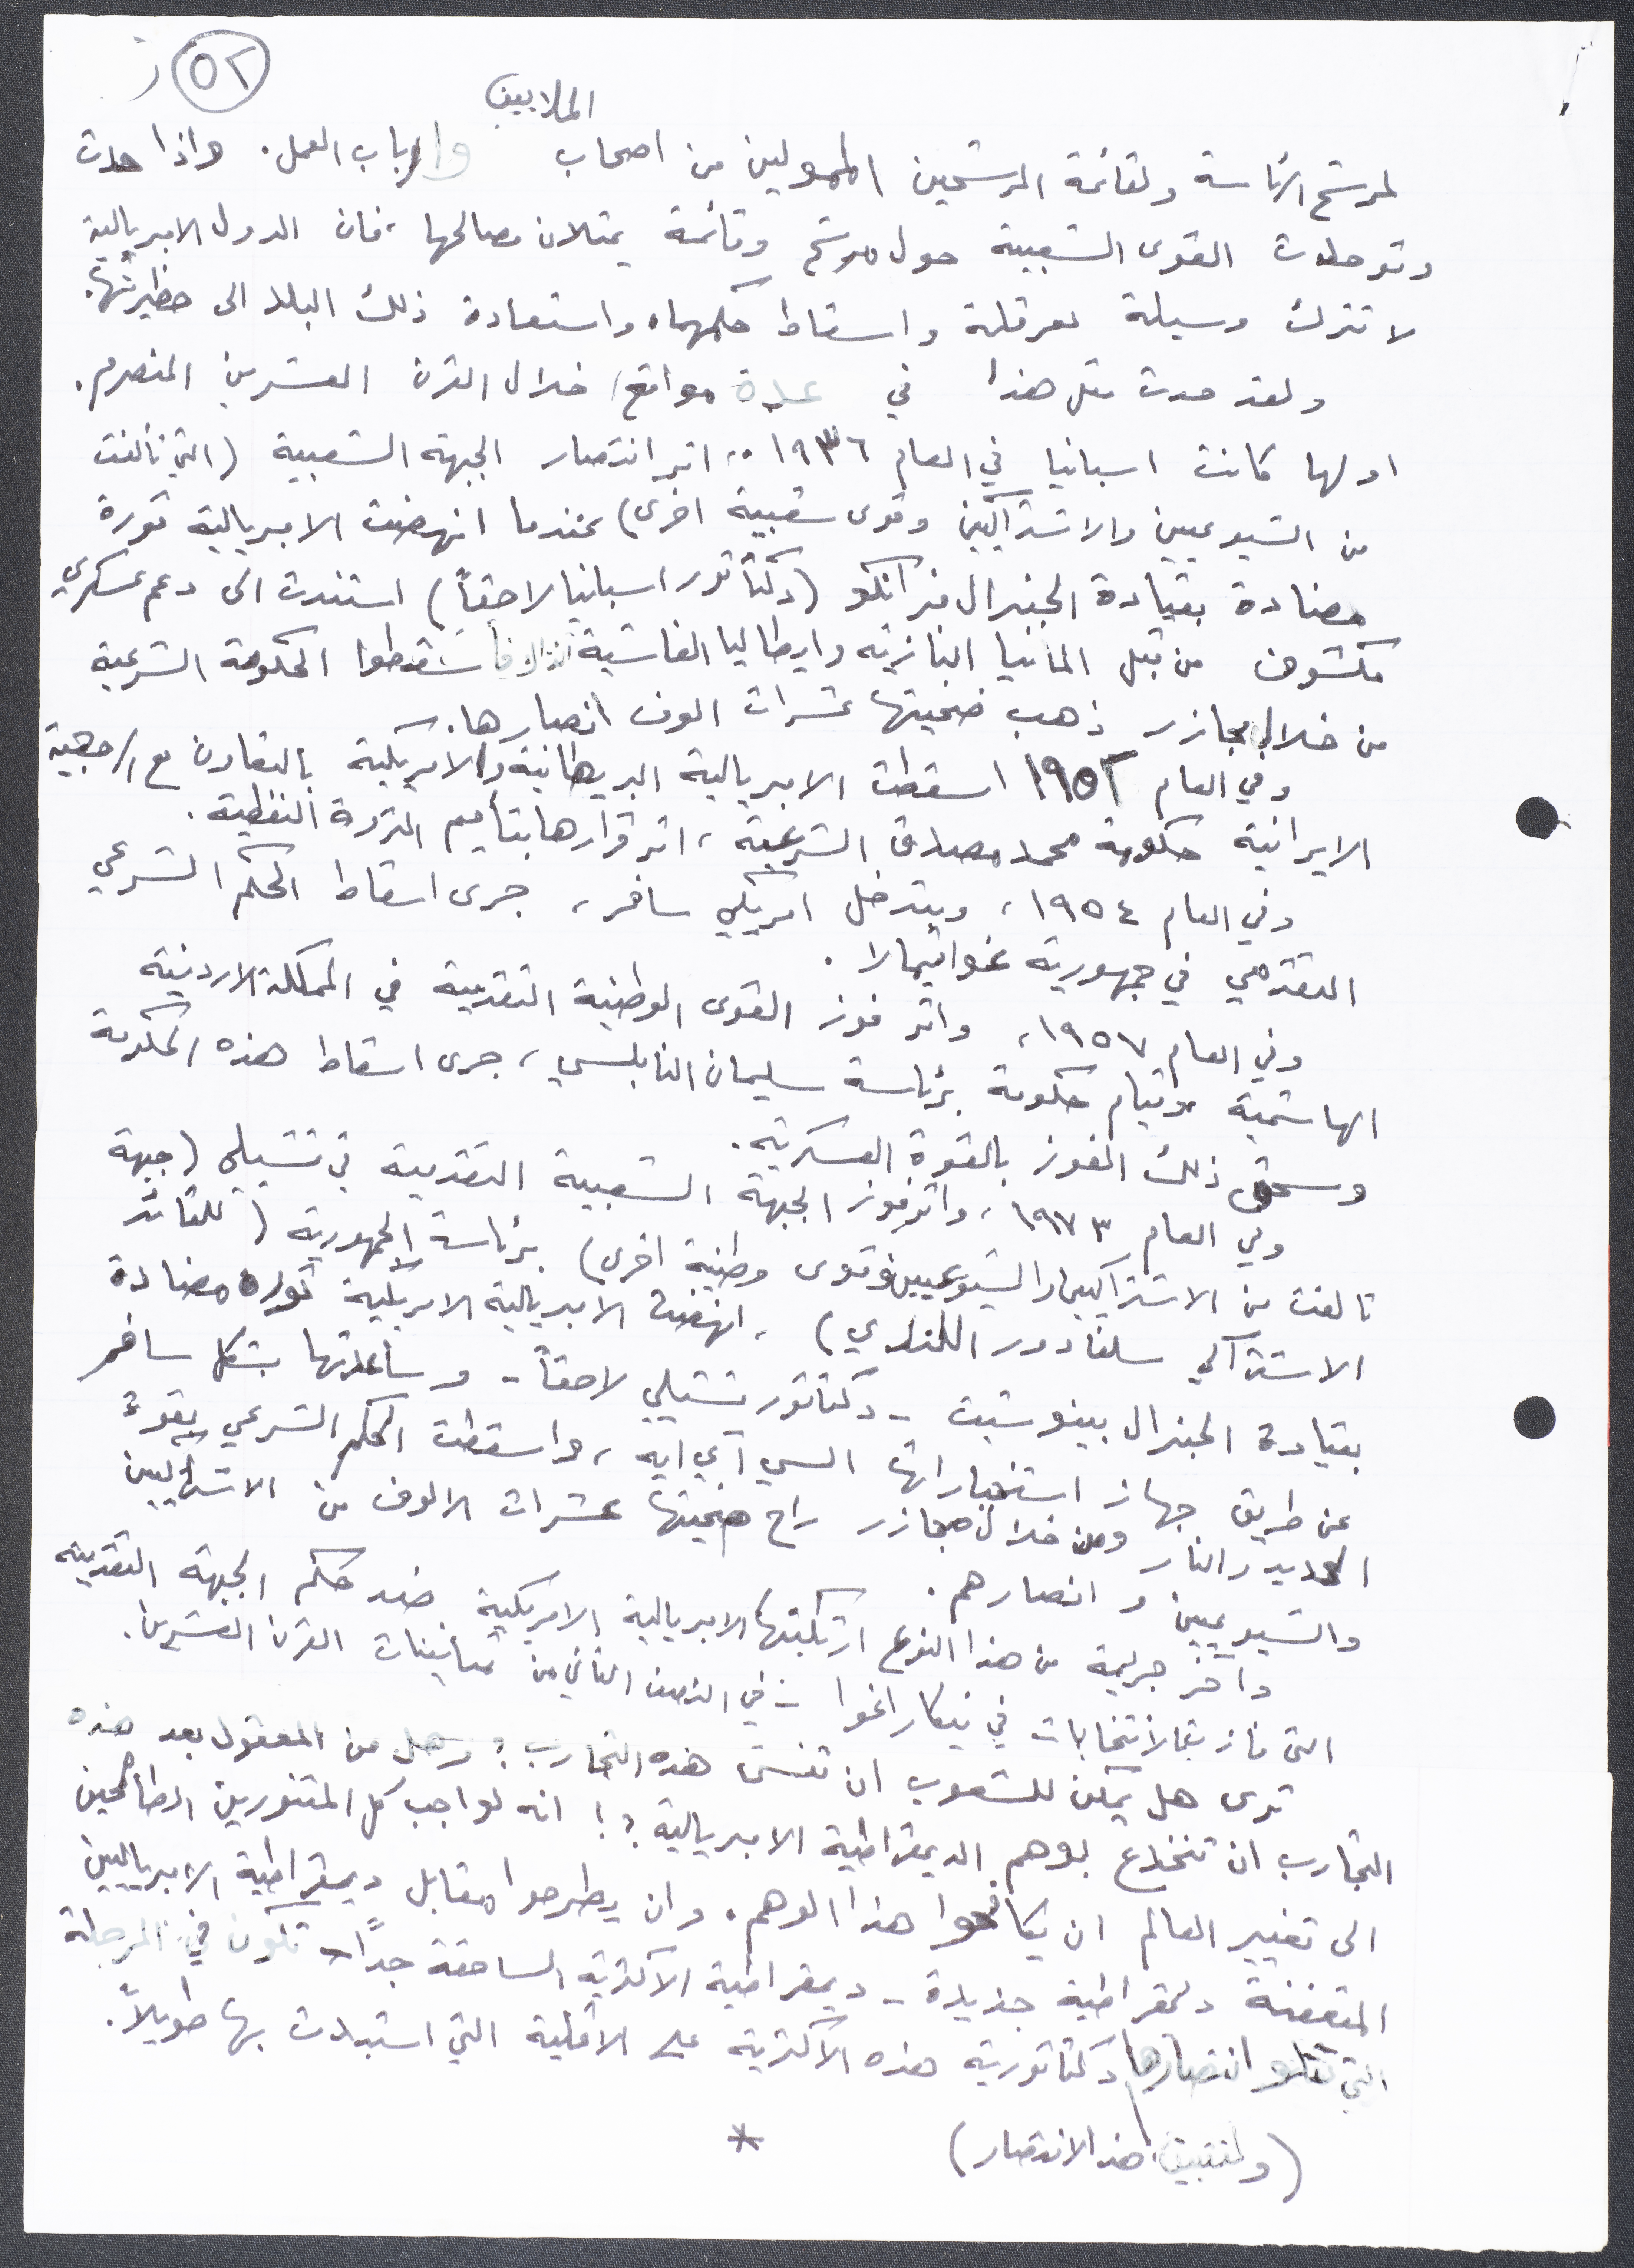 ٥٢
الملايين
لمرشح الرئاسة ولقائمة المرشحين الممولين من اصحاب وارباب العمل. واذا حدث
وتوحدت القوى الشعبية حول مرشح وقائمة يمثلان مصالحها، فان الدول الامبريالية
لا تترك وسيلة لعرقلة واسقاط حكمهما، واستعادة ذلك البلد الى حظيرتها.
ولقد حدث مثل هذا في عدة مواقع خلال القرن العشرين المنصرم.
اولها كانت اسبانيا في العام ١٩٣٦، اثر انتصار الجبهة الشعبية (التي تألفت
من الشيوعيين والاشتراكيين وقوى شعبية اخرى) عندما انهضت الامبريالية ثورة
مضادة بقيادة الجنرال فرانكو (دكتاتور اسبانيا لاحقاً) استندت الى دعم عسكري
مكشوف من قبل المانيا النازية وايطاليا الفاشية فأسقطوا الحكومة الشرعية
من خلال مجازر ذهب ضحيتها عشرات الوف انصارها.
وفي العام ١٩٥٢ اسقطت الامبريالية البريطانية والامريكية بالتعاون مع الرجعية
الايرانية حكومة محمد مصدق الشرعية، اثر قرارها بتأميم الثروة النفطية.
وفي العام ١٩٥٤، وبتدخل امريكي سافر، جرى اسقاط الحكم الشرعي
التقدمي في جمهورية غواتيمالا.
وفي العام ١٩٥٧، واثر فوز القوى الوطنية التقدمية في المملكة الاردنية
الهاشمية وقيام حكومة برئاسة سليمان النابلسي، جرى اسقاط هذه الحكومة
وسحق ذلك الفوز بالقوة العسكرية.
وفي العام ١٩٧٣، واثر فوز الجبهة الشعبية التقدمية في تشيلي (جبهة
تالفت من الاشتراكيين والشيوعيين وقوى وطنية اخرى) برئاسة الجمهورية (للقائد
الاشتراكي سلفادور اللندي)، انهضت الامبريالية الامريكية ثورة مضادة
بقيادة الجنرال بينوشيت - دكتاتور تشيلي لاحقاً - وساعدتها بشكل سافر
عن طريق جهاز استخباراتها السي آي ايه، واسقطت الحكم الشرعي بقوة
الحديد والنار ومن خلال مجازر راح ضحيتها عشرات الالوف من الاشتراكيين
والشيوعيين وانصارهم.
وآخر جريمة من هذا النوع ارتكبتها الامبريالية الامريكية ضد حكم الجبهة التقدمية
التي فازت بالانتخابات في نيكاراغوا - في النصف الثاني من ثمانينات القرن العشرين.
ترى هل يمكن للشعوب ان تنسى هذه التجارب؟ وهل من المعقول بعد هذه
التجارب ان تنخدع بوهم الديمقراطية الامبريالية؟! انه لواجب كل المتنورين الطامحين
الى تغيير العالم ان يكافحوا هذا الوهم. وان يطرحوا مقابل ديمقراطية الامبرياليين
المتعفنة ديمقراطية جديدة - ديمقراطية الاكثرية الساحقة جداً - تكون في المرحلة
التي تتلو انتصارها دكتاتورية هذه الاكثرية على الاقلية التي استبدت بها طويلاً.
(ولتثبيت هذا الانتصار)
*